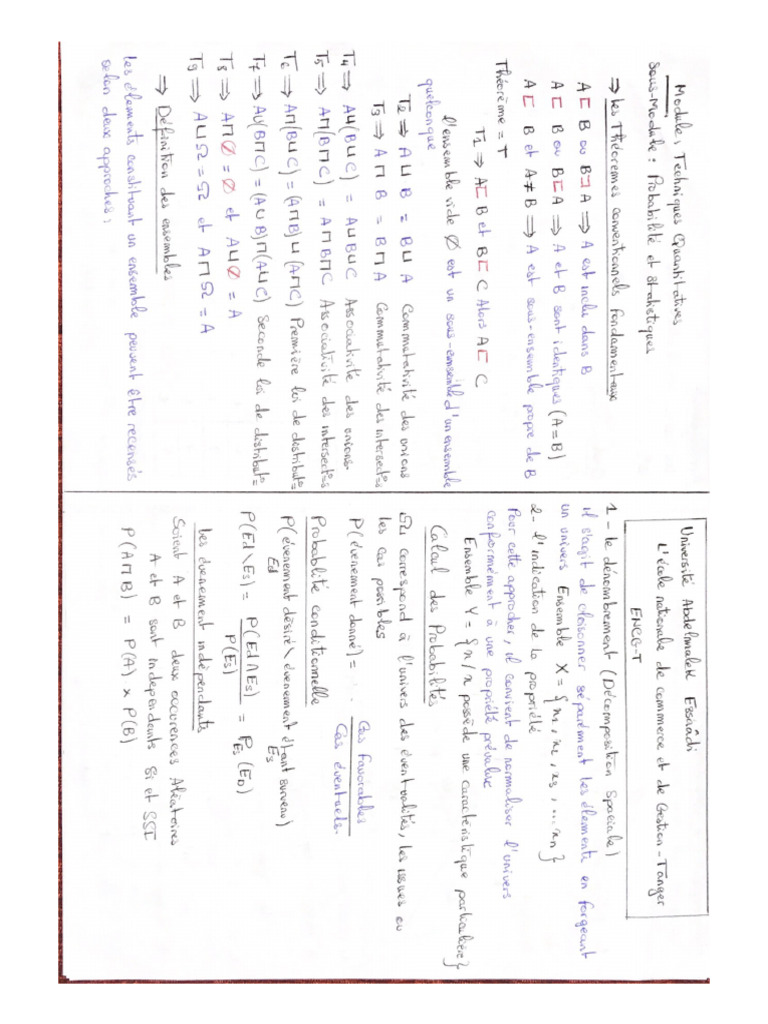 Module: Techniques Quantitatives
Sous-Module: Probabilité et statistiques
⇒ Les Théorèmes conventionnels fondamentaux
A ⊏ B ou B ⊐ A ⇒ A est inclu dans B
A ⊏ B ou B ⊏ A ⇒ A et B sont identiques (A = B)
A ⊏ B et A ≠ B ⇒ A est sous-ensemble propre de B
Théorème = T
T1 ⇒ A ⊏ B et B ⊏ C Alors A ⊏ C
l'ensemble vide Ø est un sous-ensemble d'un ensemble
quelconque
T2 ⇒ A ⊔ B = B ⊔ A Commutativité des unions
T3 ⇒ A ⊓ B = B ⊓ A Commutativité des intersect°s
T4 ⇒ A⊔(B⊔C) = A⊔B⊔C Associativité des unions.
T5 ⇒ A⊓(B⊓C) = A⊓B⊓C Associativité des intersect°s
T6 ⇒ A⊓(B⊔C) = (A⊓B)⊔(A⊓C) Première loi de distribut°
T7 ⇒ A⊔(B⊓C) = (A⊔B)⊓(A⊔C) Seconde loi de distribut°
T8 ⇒ A⊓Ø = Ø et A⊔Ø = A
T9 ⇒ A⊔Ω = Ω et A⊓Ω = A
⇒ Définition des ensembles
Les éléments constituant un ensemble peuvent être recensés
selon deux approches:
Université Abdelmalek Essaâdi
L'école nationale de commerce et de Gestion-Tanger
ENCG-T
1 - le dénombrement (Décomposition Spaciale)
il s'agit de cloisonner séparément les éléments en forgeant
un univers Ensemble X = {x1, x2, x3, ... xn}
2 - l'indication de la propriété
Pour cette approcher, il convient de normaliser l'univers
conformément à une propriété prévalue
Ensemble Y = {x/x possède une caractéristique particulière}
Calcul des Probabilités
correspond à l'univers des éventualités, les issues ou
les cas possibles
P(évenement donné) = Cas favorables / Cas éventuels.
Probablité conditionnelle
P(évenement désiré \ évenement étant survenu)
Ed Es
P(Ed \ Es) = P(Ed ∩ Es) / P(Es) = PEs (ED)
Les évenement indépendants
Soient A et B deux occurences Aléatoires
A et B sont independants Si et SSI
P(A ⊓ B) = P(A) × P(B)